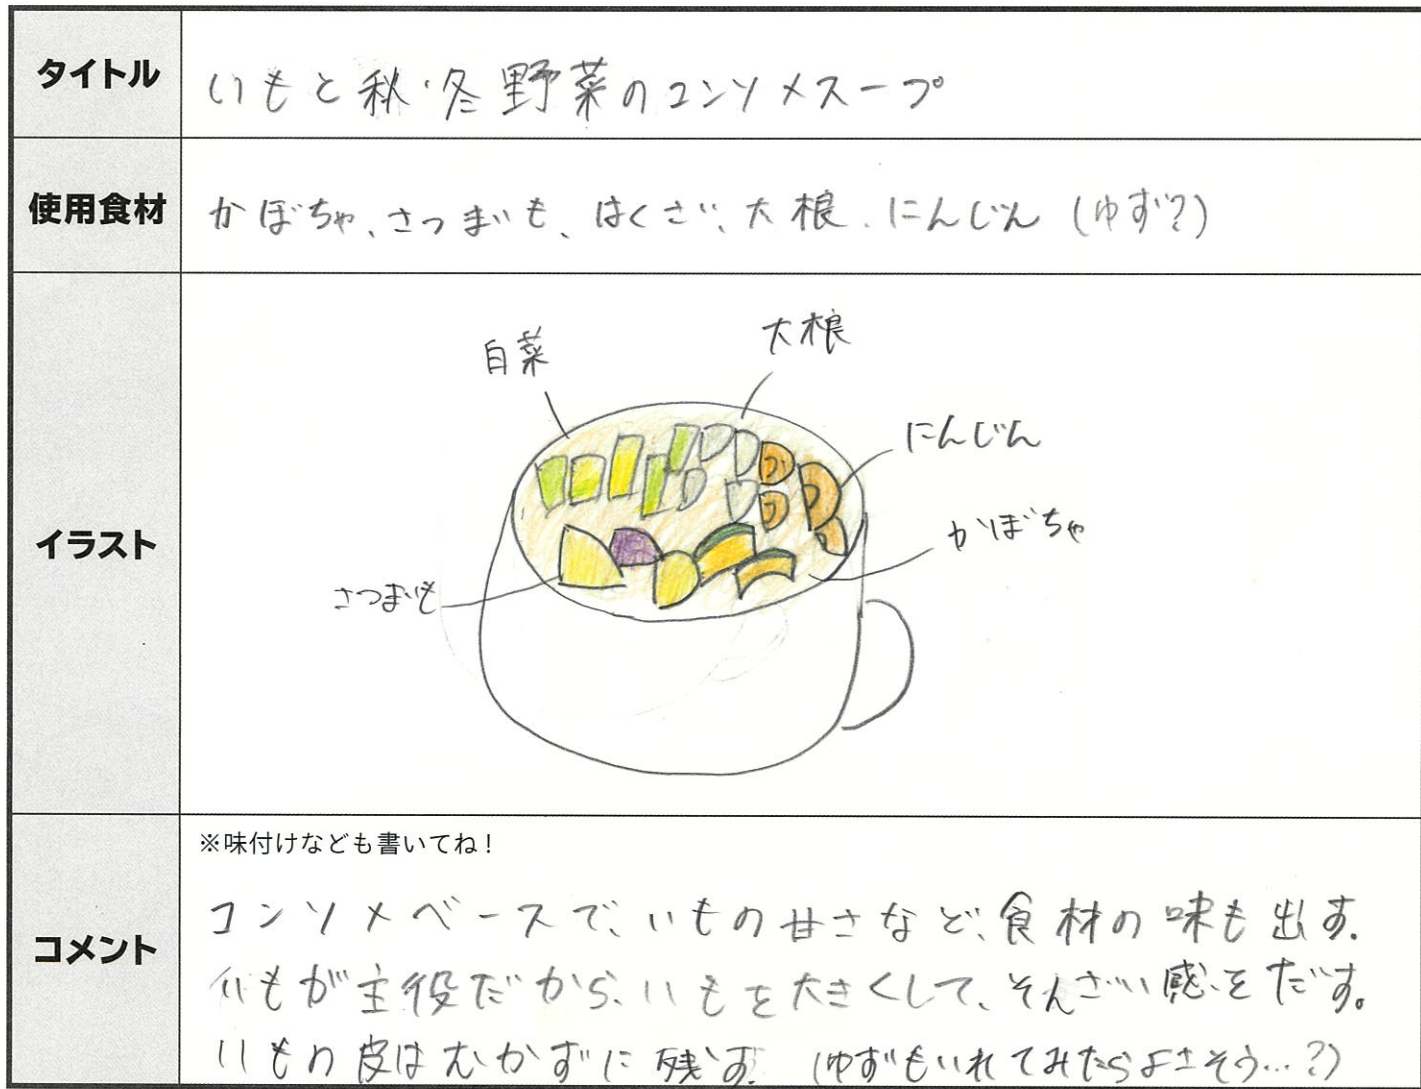 タイトル
いもと秋・冬野菜のコンソメスープ
使用食材
かぼちゃ、さつまいも、はくさい、大根、にんじん(ゆず?)
イラスト
白菜
大根
にんじん
かぼちゃ
さつまいも
コメント
※味付けなども書いてね!
コンソメベースで、いもの甘さなど、食材の味も出す。
いもが主役だから、いもを大きくして、そんざい感をだす。
いもの皮はむかずに残す。(ゆずもいれてみたらよさそう…?)